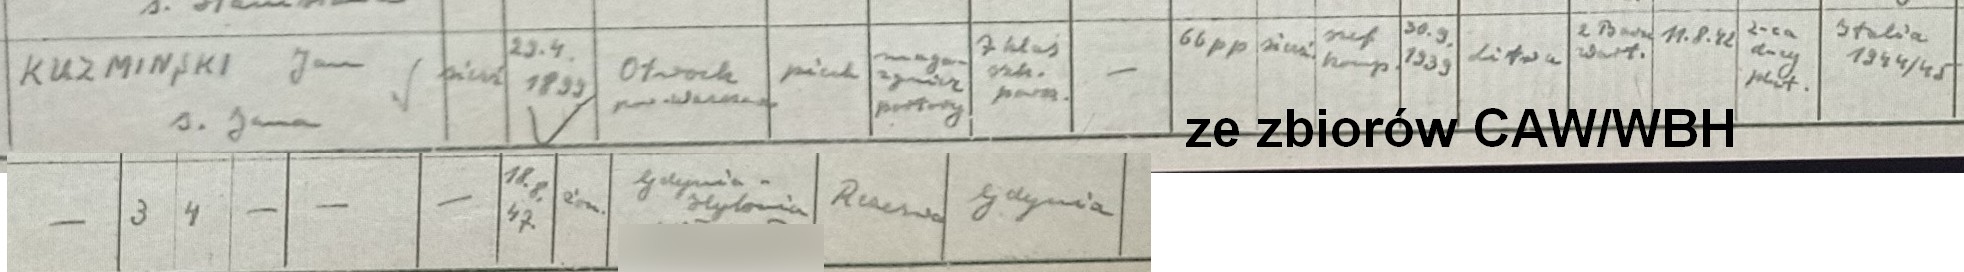 s. Stanisława
KUZMIŃSKI Jan
s. Jana
sierż
23.4.
1899
Otwock
pow. Warszawa
piech
maga-
zynier
portowy
7 klas
szk.
powsz.
—
66 pp
sierż.
szef
komp.
30.9.
1939
Litwa
2 Baon
Wart.
11.8.42
z-ca
dwcy
plut.
Italia
1944/45
ze zbiorów CAW/WBH
—
3 4
—
—
—
18.8.
47.
żon.
Gdynia -
Chylonia
Rezerwa
Gdynia